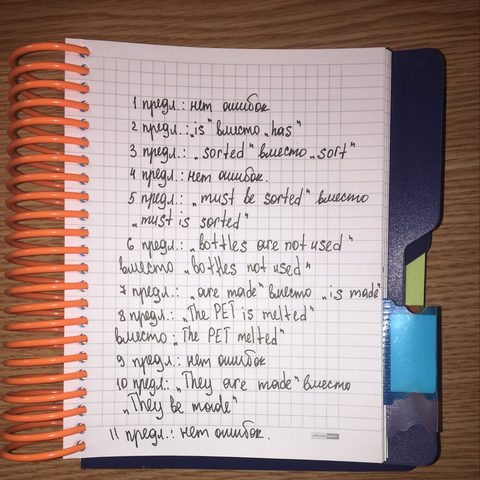 1 предл.: нет ошибок
2 предл.: „is" вместо „has"
3 предл.: „sorted" вместо „sort"
4 предл.: нет ошибок.
5 предл.: „must be sorted" вместо
„must is sorted"
6 предл.: „bottles are not used"
вместо „bottles not used"
7 предл.: „are made" вместо „is made"
8 предл.: „The PET is melted"
вместо „The PET melted"
9 предл.: нет ошибок
10 предл.: „They are made" вместо
„They be made"
11 предл.: нет ошибок.